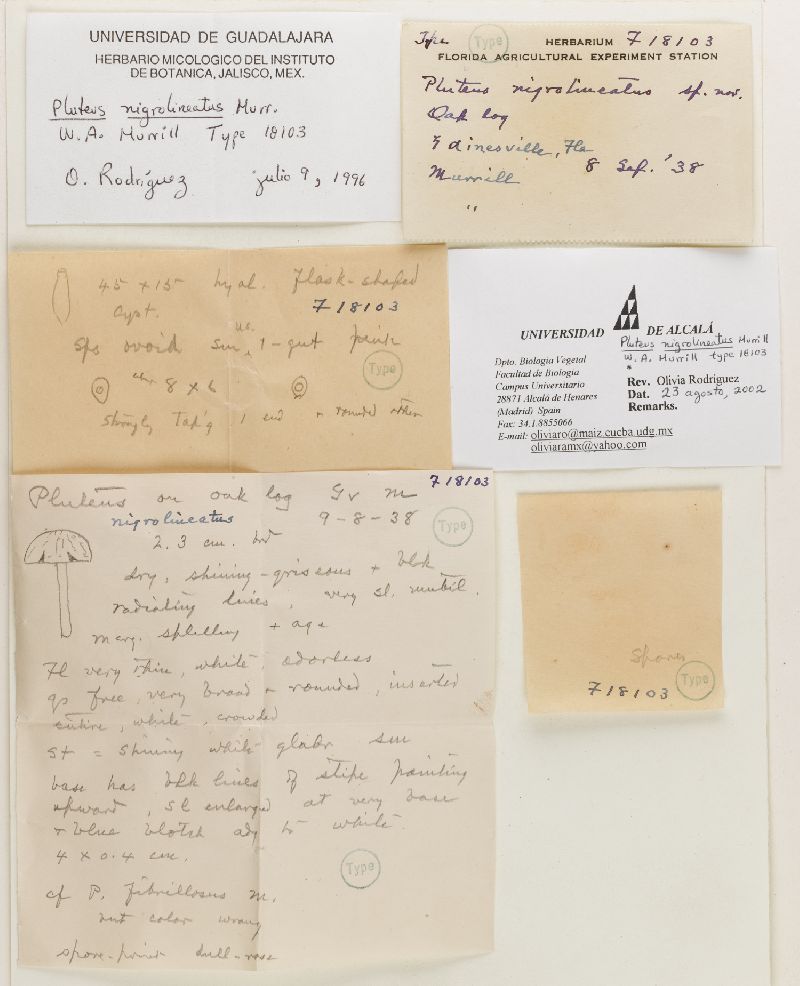 UNIVERSIDAD DE GUADALAJARA
HERBARIO MICOLOGICO DEL INSTITUTO
DE BOTANICA, JALISCO, MEX.
Pluteus nigrolineatus Murr.
W. A. Murrill Type 18103
O. Rodríguez julio 9, 1996
Type Type HERBARIUM F18103
FLORIDA AGRICULTURAL EXPERIMENT STATION
Pluteus nigrolineatus sp. nov.
Oak log
Gainesville, Fla
8 Sep. '38
Murrill
"
45 x 15 hyal. flask-shaped
cyst. F18103
sps ovoid sm, 1-gut pink
Type
8 x 6
strongly tap'g 1 end rounded other
UNIVERSIDAD DE ALCALÁ
Pluteus nigrolineatus Murrill
W. A. Murrill type 18103
*
Dpto. Biología Vegetal
Facultad de Biología
Campus Universitario
28871 Alcalá de Henares
(Madrid) Spain
Fax: 34.1.8855066
E-mail: oliviaro@maiz.cucba.udg.mx
oliviaramx@yahoo.com
Rev. Olivia Rodríguez
Dat. 23 agosto, 2002
Remarks.
F18103
Pluteus on oak log Gv M
nigrolineatus 9-8-38
Type
2.3 cm. br
dry, shining-griseous + blk
radiating lines, very sl. umbil.
marg. splitting + age
Fl very thin, white, odorless
gs free, very broad + rounded, inserted
entire, white, crowded
St = shining white glabr sm
base has blk lines of stipe pointing
upward, sl enlarged at very base
+ blue blotch adj to white.
4 x 0.4 cm.
Type
cf P. fibrillosus M.
but color wrong
spore-print dull-rose
Spores
F18103
Type